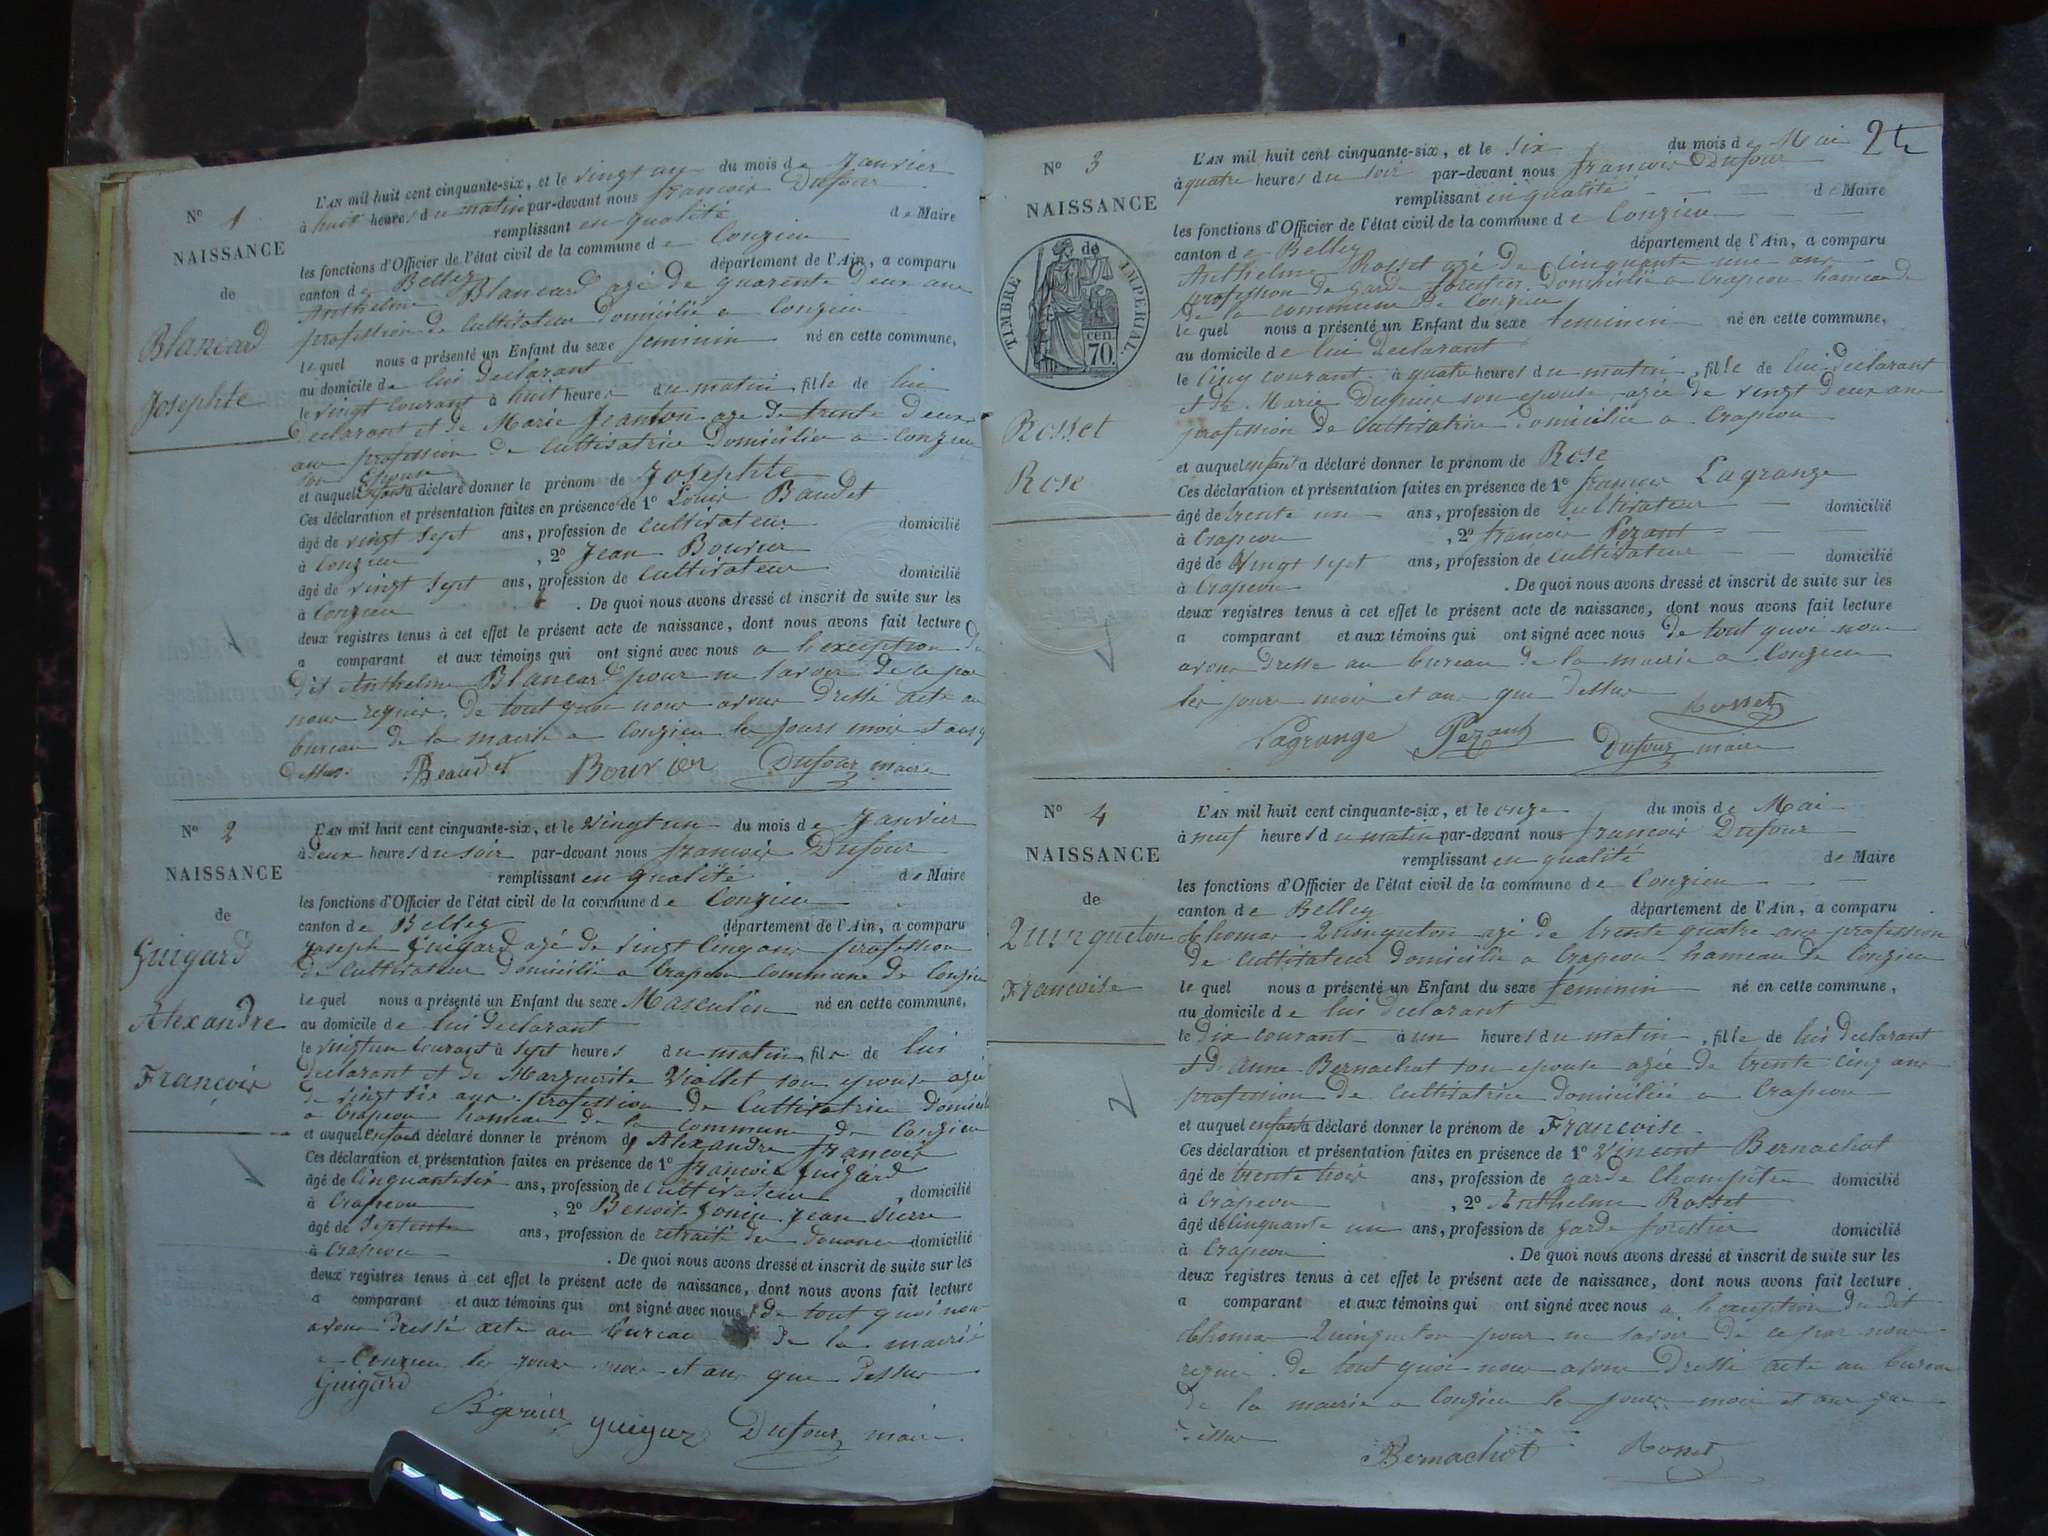 N° 1
NAISSANCE
de
Blancard
Josephte
L'AN mil huit cent cinquante-six, et le vingt un du mois de Janvier
à huit heures du matin par-devant nous françois Dufour
remplissant en qualité de Maire
les fonctions d'Officier de l'état civil de la commune de Conzieu
canton de Belley département de l'Ain, a comparu
Anthelme Blancard agé de quarente deux ans
profession de cultivateur domicilié a Conzieu
le quel nous a présenté un Enfant du sexe feminin né en cette commune,
au domicile de lui declarant
le vingt courant à huit heures du matin, fille de lui
declarant et de Marie Jeanton agé de trente deux
ans profession de cultivatrice domiciliée a Conzieu
son epouse
et auquel enfant a déclaré donner le prénom de Josephte
Ces déclaration et présentation faites en présence de 1° Louis Baudet
âgé de vingt sept ans, profession de cultivateur domicilié
à Conzieu , 2° Jean Bouvier
âgé de vingt sept ans, profession de cultivateur domicilié
à Conzieu . De quoi nous avons dressé et inscrit de suite sur les
deux registres tenus à cet effet le présent acte de naissance, dont nous avons fait lecture
a comparant et aux témoins qui ont signé avec nous a l'exception du
dit Anthelme Blancard pour ne savoir de ce par
nous requis. de tout quoi nous avons dressé acte au
bureau de la mairie a Conzieu les jours mois et an q
dessus. Beaudet Bouvier Dufour maire
N° 2
NAISSANCE
de
Guigard
Alexandre
François
L'AN mil huit cent cinquante-six, et le vingt un du mois de Janvier
à deux heures du soir par-devant nous françois Dufour
remplissant en qualité de Maire
les fonctions d'Officier de l'état civil de la commune de Conzieu
canton de Belley département de l'Ain, a comparu
Joseph Guigard agé de vingt cinq ans profession
de cultivateur domicilié a Crapeou commune de Conzieu
le quel nous a présenté un Enfant du sexe Masculin né en cette commune,
au domicile de lui declarant
le vingt un courant à sept heures du matin, fils de lui
declarant et de Marguerite Viallet son epouse agée
de vingt six ans profession de cultivatrice domicilié
a Crapeou hameau de la commune de Conzieu
et auquel enfant a déclaré donner le prénom de Alexandre françois
Ces déclaration et présentation faites en présence de 1° françois Guigard
âgé de cinquante six ans, profession de cultivateur , domicilié
à Crapeou , 2° Benoit Jean Pierre
âgé de septente ans, profession de retraité des douanes domicilié
à Crapeou . De quoi nous avons dressé et inscrit de suite sur les
deux registres tenus à cet effet le présent acte de naissance, dont nous avons fait lecture
a comparant et aux témoins qui ont signé avec nous de tout quoi nous
avons dressé acte au bureau de la mairie
a Conzieu les jours mois et ans que dessus
Guigard
guigard Dufour maire
24
N° 3
NAISSANCE
de
TIMBRE IMPERIAL.
70 cen
Rosset
Rose
L'AN mil huit cent cinquante-six, et le six du mois de Mai
à quatre heures du soir par-devant nous françois Dufour
remplissant en qualité de Maire
les fonctions d'Officier de l'état civil de la commune de Conzieu
canton de Belley département de l'Ain, a comparu
Anthelme Rosset agé de cinquante une ans
profession de garde forestier domicilié a Crapeou hameau de
de la commune de Conzieu
le quel nous a présenté un Enfant du sexe feminin né en cette commune,
au domicile de lui declarant
le cinq courant à quatre heures du matin, fille de lui declarant
et de Marie Dupuis son epouse agée de vingt deux ans
profession de cultivatrice domiciliée a Crapeou
et auquel enfant a déclaré donner le prénom de Rose
Ces déclaration et présentation faites en présence de 1° françois Lagrange
âgé de trente un ans, profession de cultivateur domicilié
à Crapeou , 2° françois Pezant
âgé de vingt sept ans, profession de cultivateur domicilié
à Crapeou . De quoi nous avons dressé et inscrit de suite sur les
deux registres tenus à cet effet le présent acte de naissance, dont nous avons fait lecture
a comparant et aux témoins qui ont signé avec nous de tout quoi nous
avons dressé au bureau de la mairie a Conzieu
les jours mois et ans que dessus Rosset
Lagrange Pezant Dufour maire
N° 4
NAISSANCE
de
Quinqueton
Francoise
L'AN mil huit cent cinquante-six, et le onze du mois de Mai
à neuf heures du matin par-devant nous françois Dufour
remplissant en qualité de Maire
les fonctions d'Officier de l'état civil de la commune de Conzieu
canton de Belley département de l'Ain, a comparu
thomas Quinqueton agé de trente quatre ans profession
de cultivateur domicilié a Crapeou hameau de Conzieu
le quel nous a présenté un Enfant du sexe feminin né en cette commune,
au domicile de lui declarant
le dix courant à un heures du matin, fille de lui declarant
et d'anne Bernachot son epouse agée de trente cinq ans
profession de cultivatrice domiciliée a Crapeou
et auquel enfant a déclaré donner le prénom de Francoise
Ces déclaration et présentation faites en présence de 1° Vincent Bernachot
âgé de trente trois ans, profession de garde champêtre domicilié
à Crapeou , 2° Anthelme Rosset
âgé de cinquante un ans, profession de garde forestier domicilié
à Crapeou . De quoi nous avons dressé et inscrit de suite sur les
deux registres tenus à cet effet le présent acte de naissance, dont nous avons fait lecture
a comparant et aux témoins qui ont signé avec nous a l'exception du dit
thomas Quinqueton pour ne savoir de ce par nous
requis. de tout quoi nous avons dressé acte au bureau
de la mairie a Conzieu les jours mois et an que
dessus
Bernachot Rosset